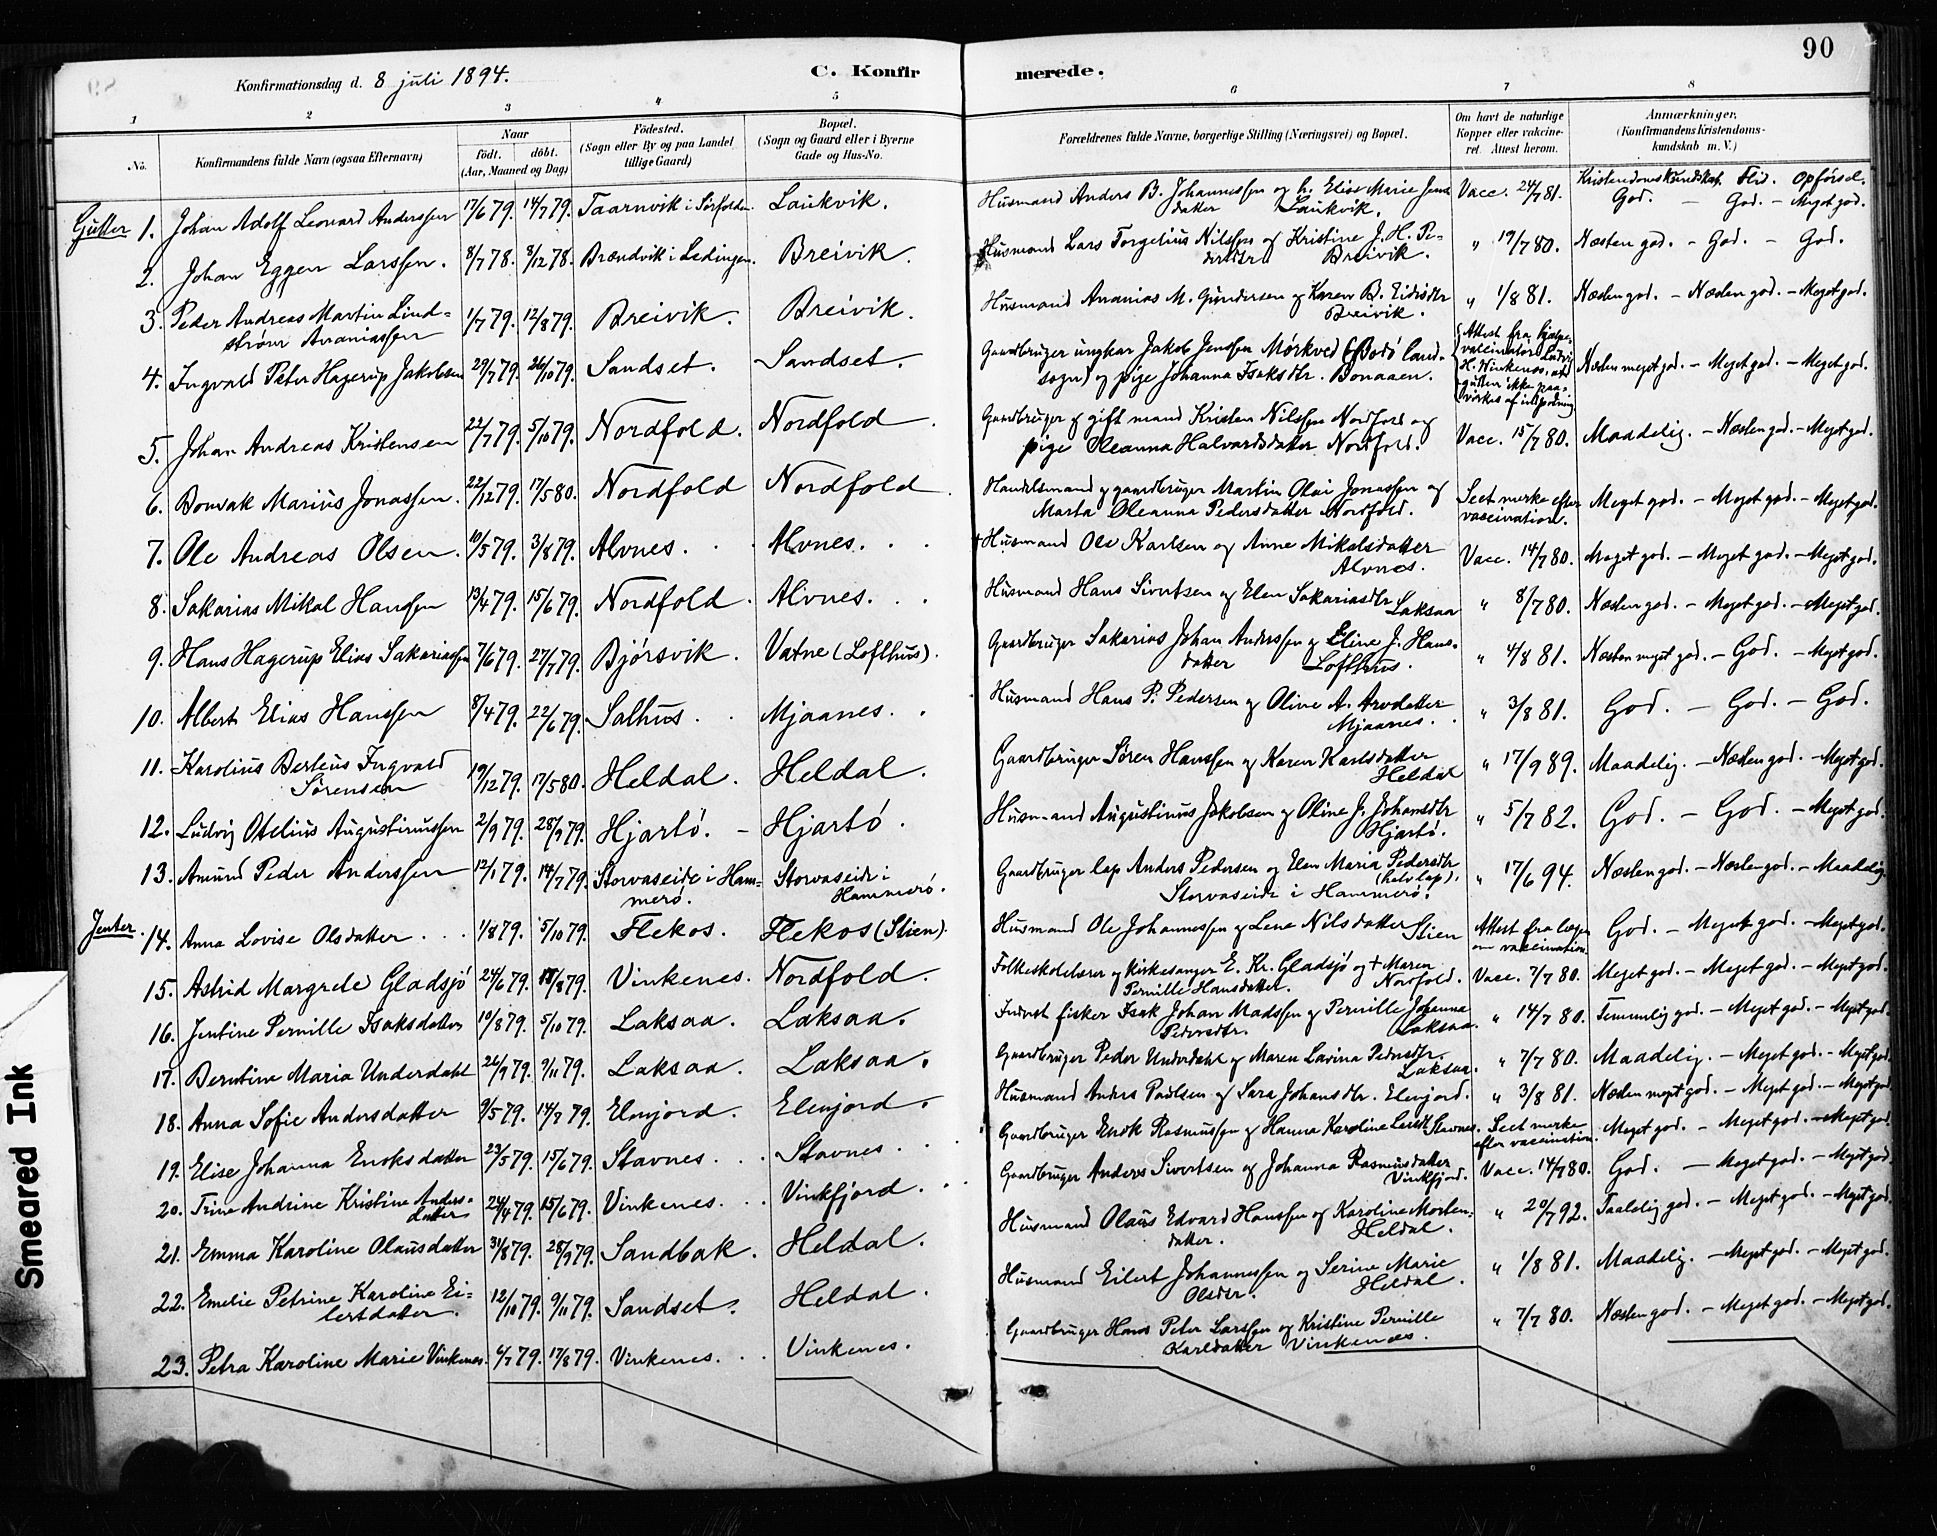 90
Konfirmationsdag d. 8 juli 1894. C. Konfirmerede.
1 2 3 4 5 6 7 8
No. Konfirmandens fulde Navn (ogsaa Efternavn) Naar födt. döbt. (Aar, Maaned og Dag) Födested. (Sogn eller By og paa Landet tillige Gaard) Bopæl. (Sogn og Gaard eller i Byerne Gade og Hus-No. Forældrenes fulde Navne, borgerlige Stilling (Næringsvei) og Bopæl. Om havt de naturlige Kopper eller vakcineret. Attest herom. Anmærkninger, (Konfirmandens Kristendomskundskab m. V.)
Kristendomskundskab. Flid. Opförsel.
Gutter 1. Johan Adolf Leonard Anderssen 17/6 79. 14/7 79. Taarnvik i Sørfolden. Laukvik. Husmand Anders B. Johannessen og h. Elise Marie Jensdatter Laukvik. Vacc. 24/7 81. God. — God. — Meget god.
2. Johan Eggen Larssen. 8/7 78. 8/12 78. Brændvik i Lødingen. Breivik. Husmand Lars Torgelius Nilssen og Kristine J. H. Pedersdtr Breivik. " 19/7 80. Næsten god. — God. — God.
3. Peder Andreas Martin Lindstrøm Ananiassen 1/7 79. 12/8 79. Breivik. Breivik. Husmand Ananias M. Gundersen og Karen B. Eidisdtr Breivik. " 1/8 81. Næsten god. — Næsten god. — Meget god.
4. Ingvald Peter Hagerup Jakobsen 29/7 79. 26/10 79. Sandset. Sandset. Gaardbruger ungkar Jakob Jenssen Mørkved (Bodö landsogn) og pige Johanna Isaksdtr. Bonaaen. Attest fra hjælpevaccinatør Ludvig H. Vinkenes, at gutten ikke paavirkes af indpodning. Næsten meget god. — Meget god. — Meget god.
5. Johan Andreas Kristensen 22/7 79. 5/10 79. Nordfold. Nordfold. Gaardbruger og gift mand Kristen Nilssen Nordfold og pige Oleanna Halvardsdatter Nordfold. Vacc. 15/7 80. Maadelig. — Næsten god. — Meget god.
6. Bonsak Marius Jonassen. 22/12 79. 17/5 80. Nordfold Nordfold Handelsmand og gaardbruger Martin Olai Jonassen og Marta Oleanna Pedersdatter Nordfold. Seet merke efter vaccination. Meget god. — Meget god. — Meget god.
7. Ole Andreas Olsen. 10/5 79. 3/8 79. Alvnes. Alvnes. + Husmand Ole Karlsen og Anne Mikalsdatter Alvnes. Vacc. 14/7 80. Meget god. — Meget god. — Meget god.
8. Sakarias Mikal Hanssen 13/4 79. 15/6 79. Nordfold. Alvnes. Husmand Hans Sivertsen og Elen Sakariasdtr Laksaa " 8/7 80. Næsten god. — Meget god. — Meget god.
9. Hans Hagerup Elias Sakariassen 7/6 79. 27/7 79. Bjørsvik. Vatne (Lofthus). Gaardbruger Sakarias Johan Anderssen og Eline J. Hansdatter Lofthus. " 4/8 81. Næsten meget god. — God. — Meget god.
10. Albert Elias Hanssen 8/4 79. 22/6 79. Salhus. Mjaanes. Husmand Hans P. Pedersen og Oline A. Arvdatter Mjaanes. " 3/8 81. God. — God. — God.
11. Karolius Berteus Ingvald Sörensen 19/12 79. 17/5 80. Heldal. Heldal. Gaardbruger Sören Hanssen og Karen Karlsdatter Heldal " 17/9 89. Maadelig. — Næsten god. — Meget god.
12. Ludvig Otelius Augustinussen 2/9 79. 28/9 79. Hjartö. — Hjartö. Husmand Augustinus Jakobsen og Oline J. Johansdtr Hjartö. " 5/7 82. God. — God. — Meget god.
13. Amund Peder Anderssen 12/1 79. 14/7 79. Storvaseide i Hammerø. Storvaseide i Hammerø. Gaardbruger lap Anders Pedersen og Elen Maria Pedersdtr (halv lap). Storvaseide i Hammerø. " 17/6 94. Næsten god. — Næsten god. — Maadelig.
Jenter. 14. Anna Lovise Olsdatter. 1/8 79. 5/10 79. Flekos. Flekos (Stien). Husmand Ole Johannessen og Lene Nilsdatter Stien Attest fra lægen om vakcination. God. — Meget god. — Meget god.
15. Astrid Margrete Gladsjö 24/6 79. 17/8 79. Vinkenes. Nordfold. Folkeskolelærer og kirkesanger E. Kr. Gladsjö og + Maren Pernille Hansdatter. Nordfold. Vacc. 7/7 80. Meget god. — Meget god. — Meget god.
16. Jentine Pernille Isaksdatter 10/8 79. 5/10 79. Laksaa. Laksaa. Inderst fisker Isak Johan Madssen og Pernille Johanna Pedersdtr. Laksaa. " 14/7 80. Temmelig god. — Meget god. — Meget god.
17. Berntine Maria Underdahl 26/9 79. 9/11 79. Laksaa. Laksaa. Gaardbruger Peder Underdahl og Maren Lavina Pedersdtr. Laksaa. " 7/7 80. Maadelig. — Meget god. — Meget god.
18. Anna Sofie Andersdatter 9/5 79. 14/7 79. Elvnjord. Elenjord. Husmand Anders Paulsen og Sara Johansdtr. Elenjord. " 3/8 81. Næsten meget god. — Meget god. — Meget god.
19. Elise Johanna Eriksdatter 23/5 79. 15/6 79. Stavnes. Stavnes. Gaardbruger Erik Rasmussen og Hanna Karoline Larsdtr Stavnes. Seet merke efter vaccination. Meget god. — Meget god. — Meget god.
20. Trine Andrine Kristine Andersdatter 24/4 79. 15/6 79. Vinkenes. Vinkfjord. Gaardbruger Anders Sivertsen og Johanna Rasmusdatter Vinkfjord. Vacc. 14/7 80. God. — Meget god. — Meget god.
21. Emma Karoline Olausdatter 31/8 79. 28/9 79. Sandbak. Heldal. Husmand Olaus Edvard Hanssen og Karoline Mortensdatter. Heldal. " 20/7 92. Taalelig god. — Meget god. — Meget god.
22. Emelie Petrine Karoline Eilertdatter. 12/10 79. 9/11 79. Sandset. Heldal. Husmand Eilert Johannessen og Serine Marie Olsdtr. Heldal. " 1/8 81. Maadelig. — Meget god. — Meget god.
23. Petra Karoline Marie Vinkenes. 4/7 79. 17/8 79. Vinkenes. Vinkenes. Gaardbruger Hans Peter Larssen og Kristine Pernille Karldatter Vinkenes. " 7/7 80. Næsten god. — Meget god. — Meget god.
Smeared Ink